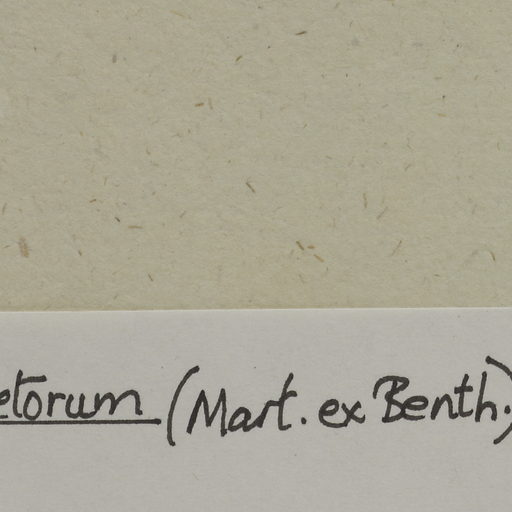 etorum (Mart. ex Benth.)